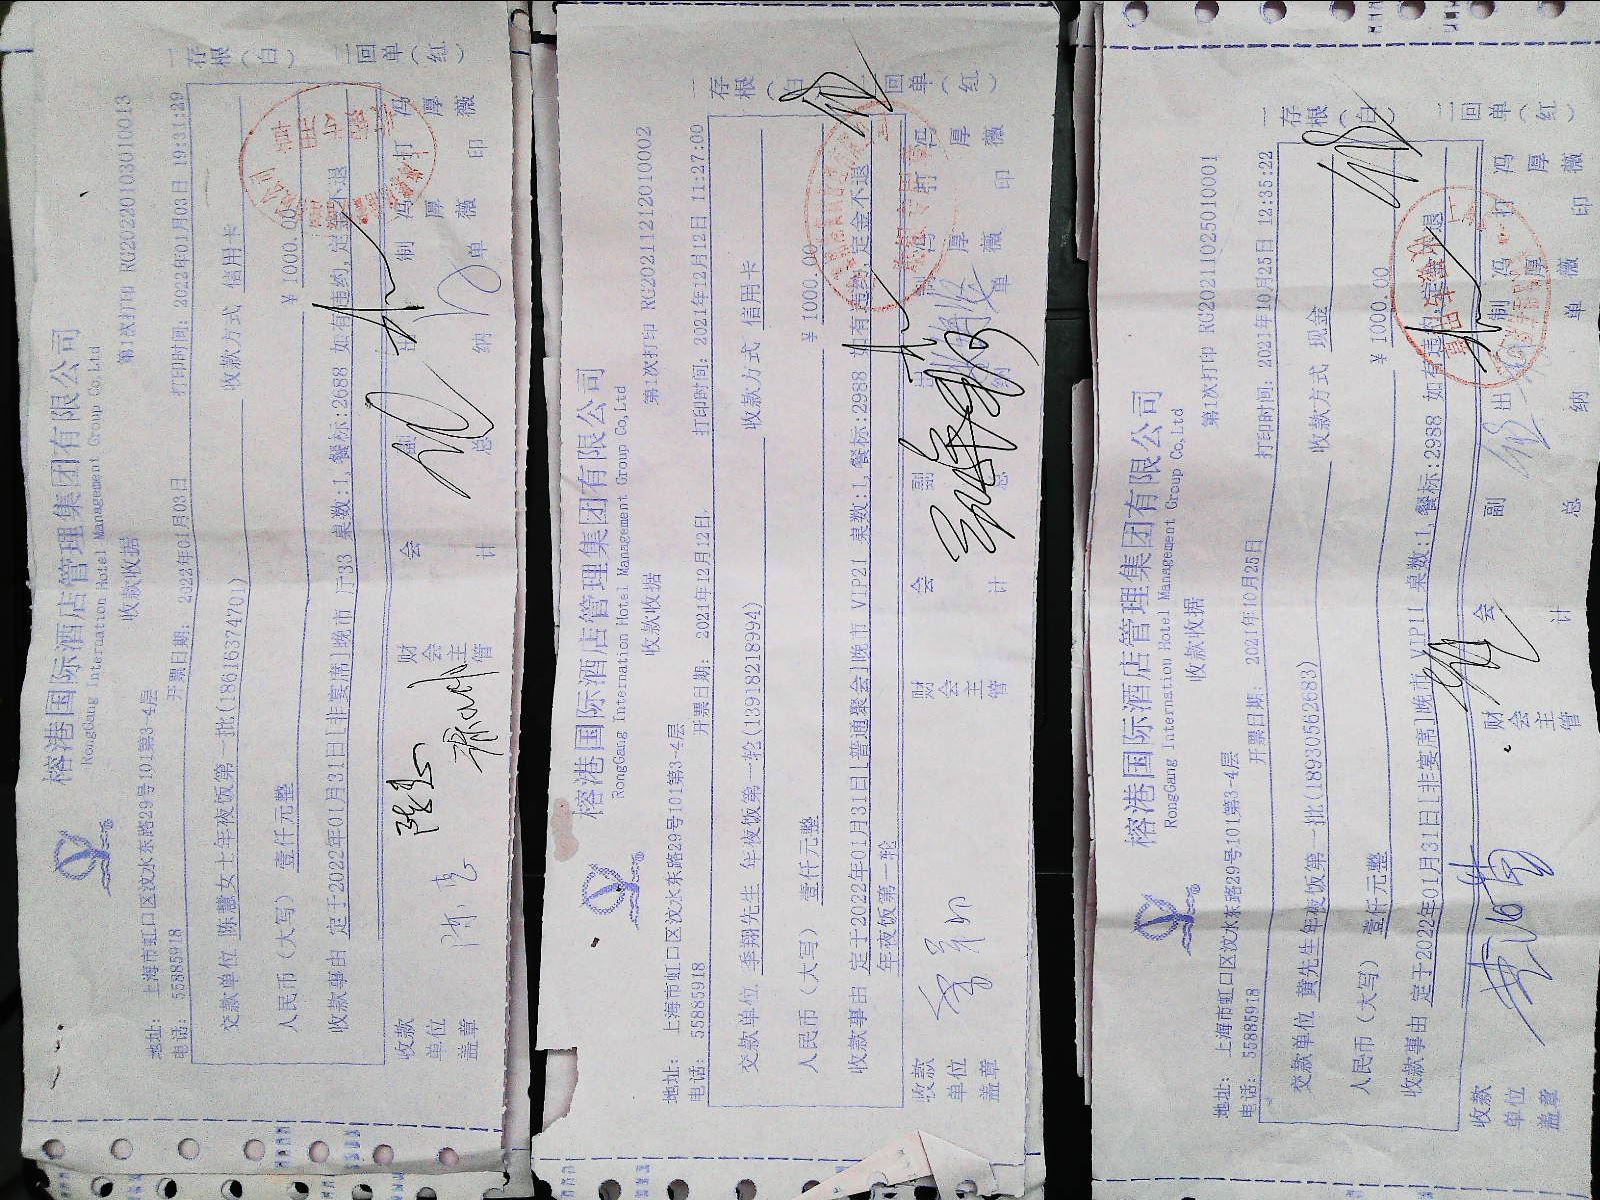 榕港国际酒店管理集团有限公司
RongGang Internation Hotel Management Group Co,Ltd
收款收据
第1次打印 RG20220103010013
地址: 上海市虹口区汶水东路29号101第3-4层
电话: 55885918
开票日期: 2022年01月03日
打印时间: 2022年01月03日 19:31:29
交款单位 陈慧女士年夜饭第一批(18616374701)
收款方式 信用卡
人民币（大写） 壹仟元整
¥ 1000.00
收款事由 定于2022年01月31日[非宴席]晚市 厅33 桌数:1,餐标:2688 如有违约,定金不退
收款单位盖章
财会主管
会计
副总
出纳
制单 冯厚薇
打印 冯厚薇
一存根（白）
二回单（红）
榕港国际酒店管理集团有限公司
RongGang Internation Hotel Management Group Co,Ltd
收款收据
第1次打印 RG20211212010002
地址: 上海市虹口区汶水东路29号101第3-4层
电话: 55885918
开票日期: 2021年12月12日
打印时间: 2021年12月12日 11:27:00
交款单位 季翔先生 年夜饭第一轮(13918218994)
收款方式 信用卡
人民币（大写） 壹仟元整
¥ 1000.00
收款事由 定于2022年01月31日[普通聚会]晚市 VIP21 桌数:1,餐标:2988 如有违约,定金不退
年夜饭第一轮
收款单位盖章
财会主管
会计
副总
出纳
制单 冯厚薇
打印 冯厚薇
一存根（白）
二回单（红）
榕港国际酒店管理集团有限公司
RongGang Internation Hotel Management Group Co,Ltd
收款收据
第1次打印 RG20211025010001
地址: 上海市虹口区汶水东路29号101第3-4层
电话: 55885918
开票日期: 2021年10月25日
打印时间: 2021年10月25日 12:35:22
交款单位 黄先生年夜饭第一批(18930562683)
收款方式 现金
人民币（大写） 壹仟元整
¥ 1000.00
收款事由 定于2022年01月31日[非宴席]晚市 VIP11 桌数:1,餐标:2988 如有违约,定金不退
收款单位盖章
财会主管
会计
副总
出纳
制单 冯厚薇
打印 冯厚薇
一存根（白）
二回单（红）